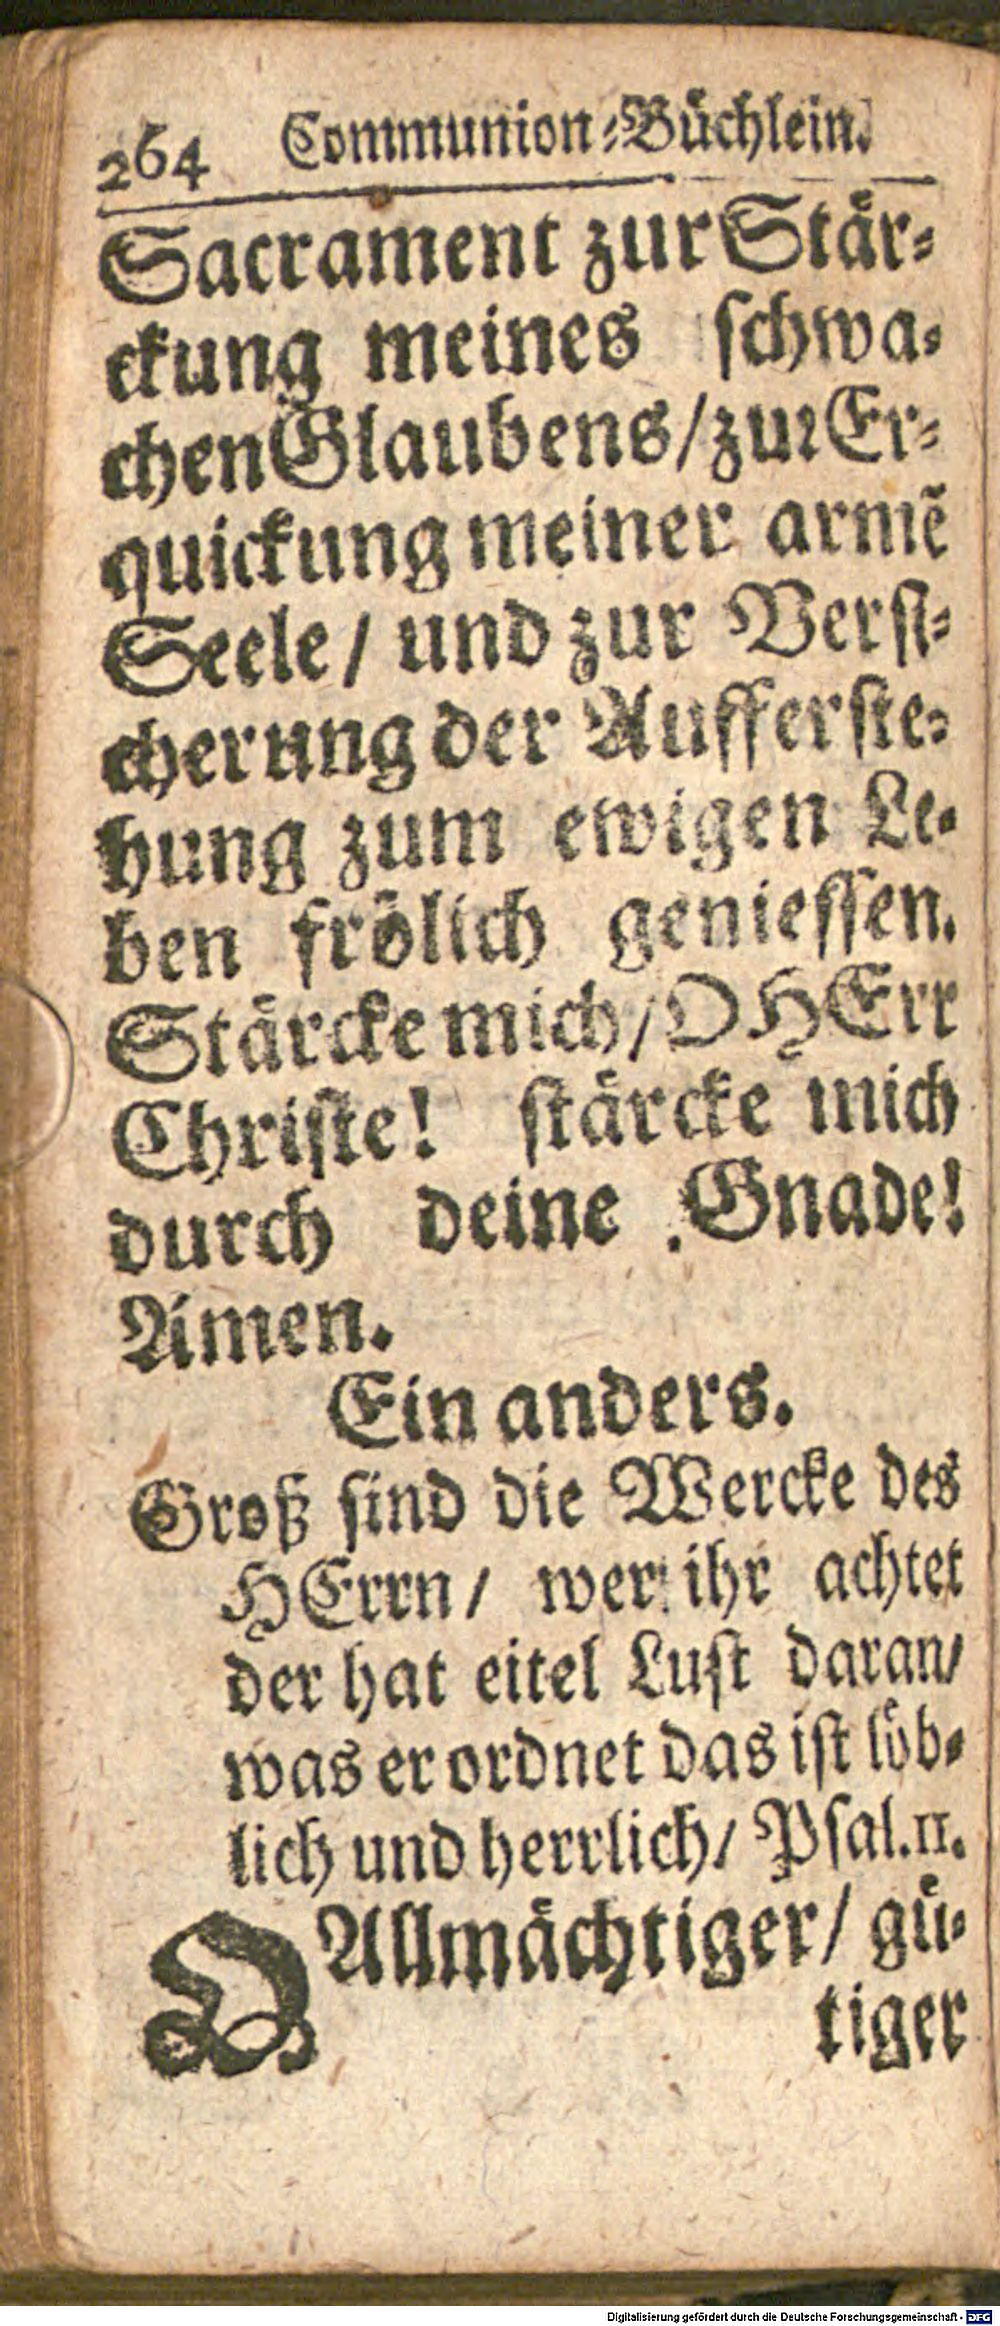 264 Communion⸗Büchlein.
Sacrament zur Stär⸗
ckung meines schwa⸗
chen Glaubens/ zur Er⸗
quickung meiner armẽ
Seele/ und zur Versi⸗
cherung der Aufferste⸗
hung zum ewigen Le⸗
ben frölich geniessen.
Stärcke mich/ O HErr
Christe! stärcke mich
durch deine Gnade!
Amen.
Ein anders.
Groß sind die Wercke des
HErrn/ wer ihr achtet
der hat eitel Lust daran/
was er ordnet das ist löb⸗
lich und herrlich/ Psal. 11.
O Allmächtiger/ gü⸗
tiger
Digitalisierung gefördert durch die Deutsche Forschungsgemeinschaft - DFG